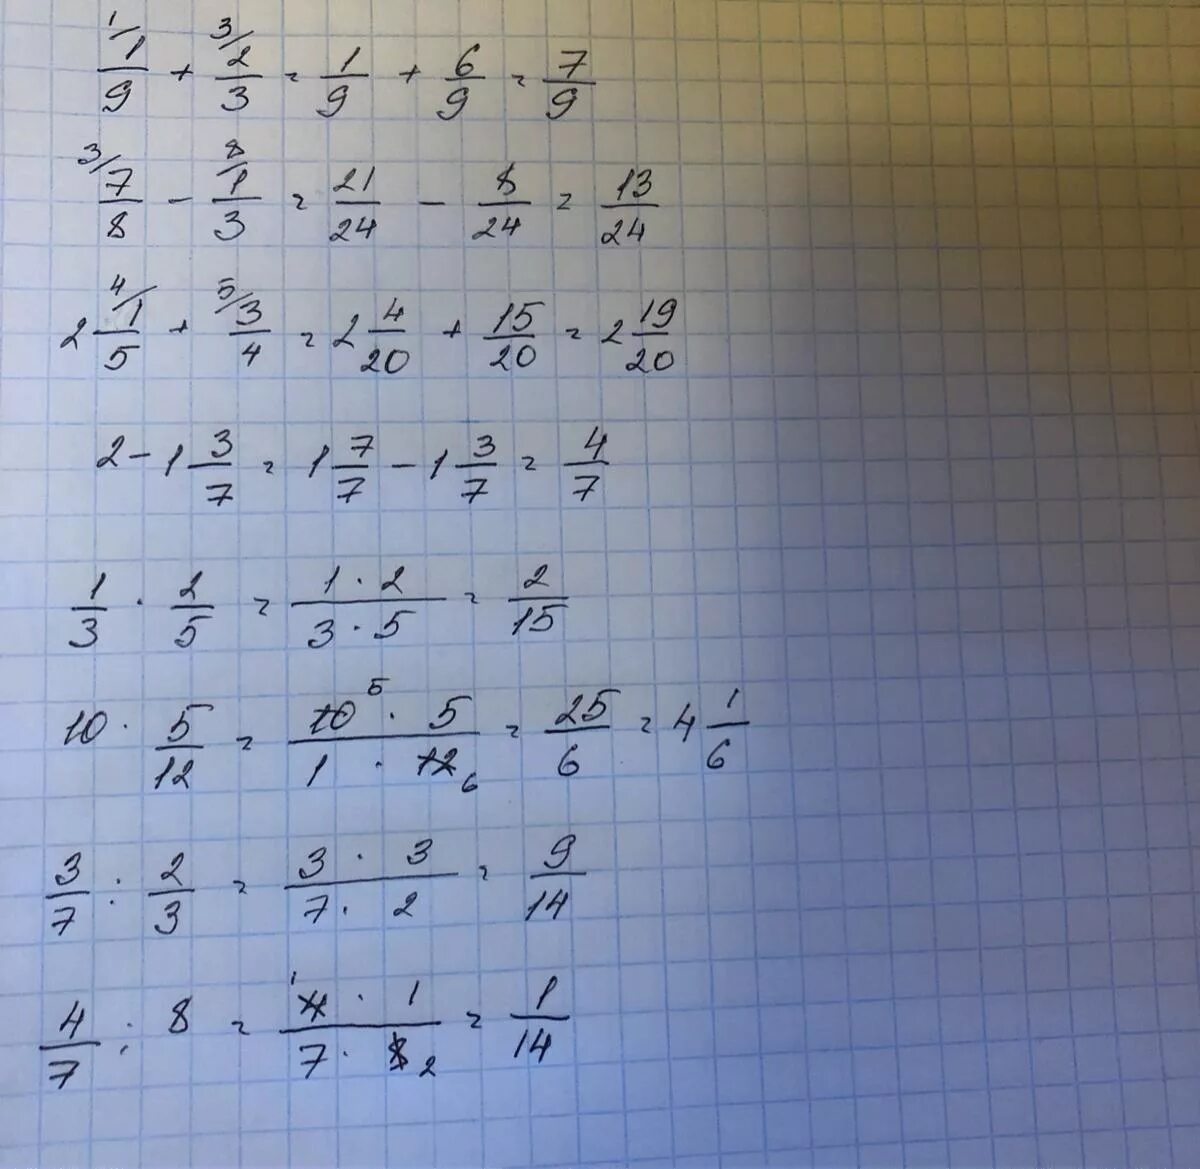 1/ 1/9 + 3/ 2/3 = 1/9 + 6/9 = 7/9
3/ 7/8 - 8/ 1/3 = 21/24 - 8/24 = 13/24
2 4/ 1/5 + 5/ 3/4 = 2 4/20 + 15/20 = 2 19/20
2 - 1 3/7 = 1 7/7 - 1 3/7 = 4/7
1/3 · 2/5 = 1 · 2 / 3 · 5 = 2/15
10 · 5/12 = 10 5 · 5 / 1 · 12 6 = 25/6 = 4 1/6
3/7 : 2/3 = 3 · 3 / 7 · 2 = 9/14
4/7 : 8 = 1 4 · 1 / 7 · 8 2 = 1/14